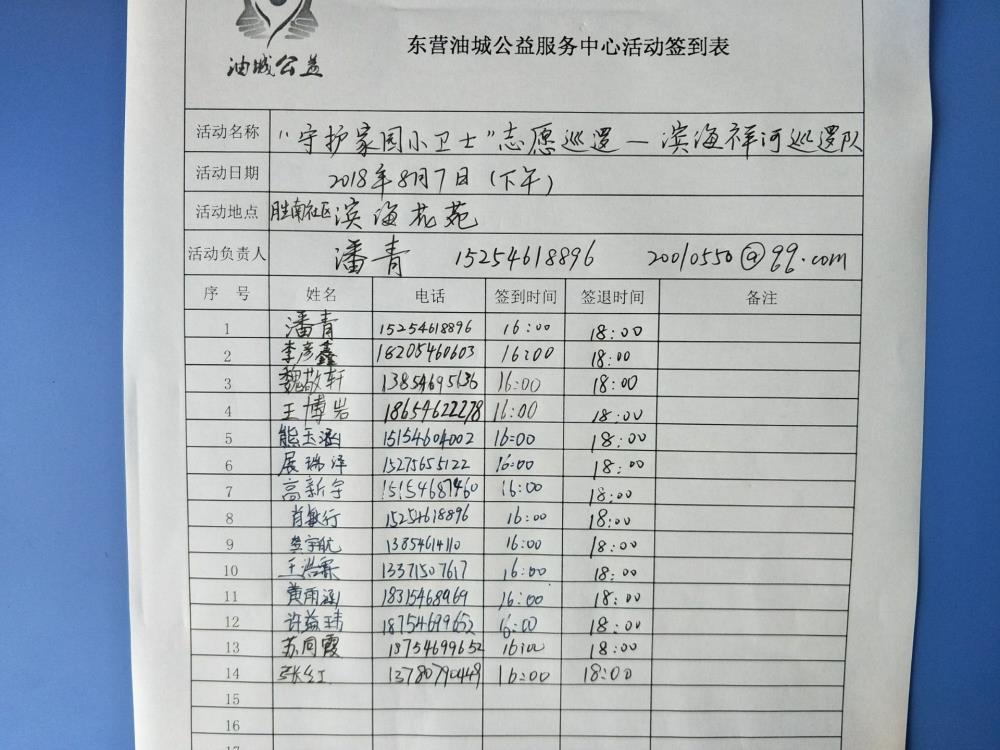 油城公益
东营油城公益服务中心活动签到表
活动名称 “守护家园小卫士”志愿巡逻—滨海祥河巡逻队
活动日期 2018年8月7日(下午)
活动地点 胜南社区滨海花苑
活动负责人 潘青 15254618896 20010550@qq.com
序号 姓名 电话 签到时间 签退时间 备注
1 潘青 15254618896 16:00 18:00
2 李彦鑫 18205460603 16:00 18:00
3 魏敬轩 13854695636 16:00 18:00
4 王博岩 18654622278 16:00 18:00
5 熊玉涵 15154604002 16:00 18:00
6 展瑞泽 15275655122 16:00 18:00
7 高新宇 15154687460 16:00 18:00
8 肖敏行 15254618896 16:00 18:00
9 李宇航 13854614110 16:00 18:00
10 王浩霖 13371507617 16:00 18:00
11 黄雨涵 18315468969 16:00 18:00
12 许益玮 18754699652 16:00 18:00
13 苏同霞 18754699652 16:00 18:00
14 张红 13780790449 16:00 18:00
15
16